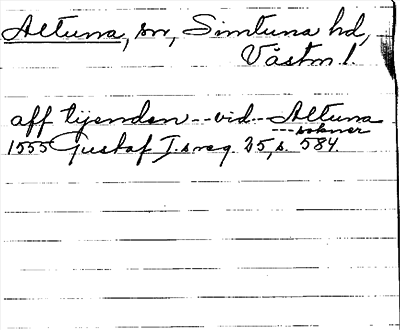 Altuna, sn, Simtuna hd,
Västm l.
aff tijenden -- vid -- Altuna
--- sokner
1555 Gustaf I:s reg. 25, s. 584.